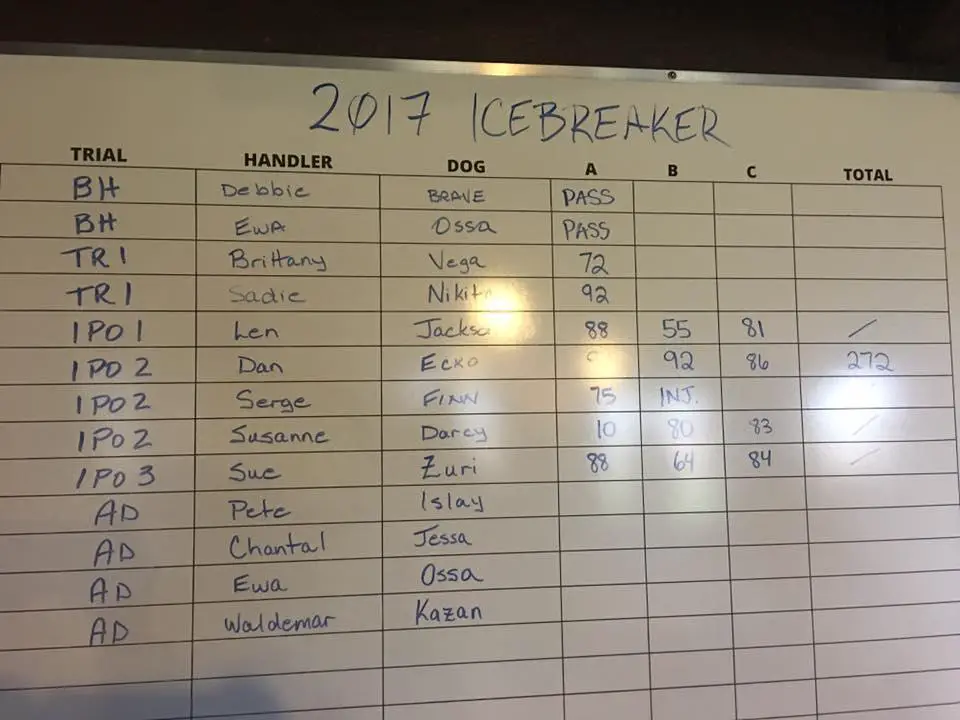 2017 ICEBREAKER
TRIAL HANDLER DOG A B C TOTAL
BH Debbie BRAVE PASS
BH EWA Ossa PASS
TR1 Brittany Vega 72
TR1 Sadie 92
IPO1 Len 88 55 81 /
IPO2 Dan ECKO 92 86 272
IPO2 Serge FINN 75 INJ.
IPO2 Susanne Darcy 10 80 83 /
IPO3 Sue Zuri 88 64 84 /
AD Pete Islay
AD Chantal Jessa
AD Ewa Ossa
AD Waldemar Kazan